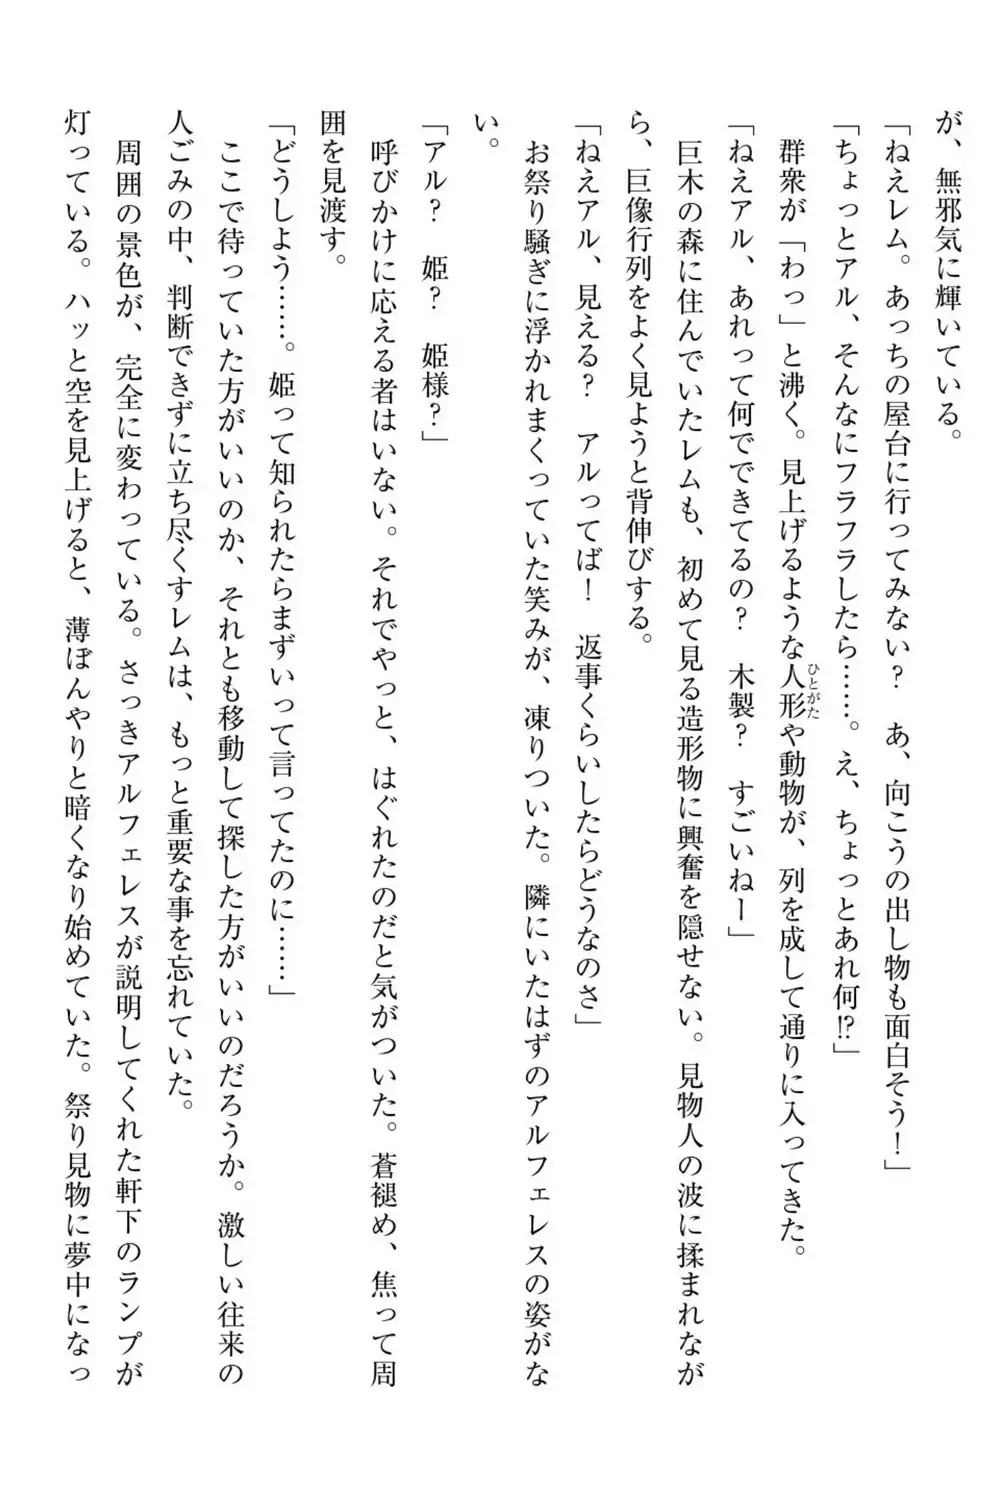 が、無邪気に輝いている。
「ねえレム。あっちの屋台に行ってみない？　あ、向こうの出し物も面白そう！」
「ちょっとアル、そんなにフラフラしたら……。え、ちょっとあれ何!?」
　群衆が「わっ」と沸く。見上げるような人形や動物が、列を成して通りに入ってきた。
ひとがた
「ねえアル、あれって何でできてるの？　木製？　すごいねー」
　巨木の森に住んでいたレムも、初めて見る造形物に興奮を隠せない。見物人の波に揉まれなが
ら、巨像行列をよく見ようと背伸びする。
「ねえアル、見える？　アルってば！　返事くらいしたらどうなのさ」
　お祭り騒ぎに浮かれまくっていた笑みが、凍りついた。隣にいたはずのアルフェレスの姿がな
い。
「アル？　姫？　姫様？」
　呼びかけに応える者はいない。それでやっと、はぐれたのだと気がついた。蒼褪め、焦って周
囲を見渡す。
「どうしよう……。姫って知られたらまずいって言ってたのに……」
　ここで待っていた方がいいのか、それとも移動して探した方がいいのだろうか。激しい往来の
人ごみの中、判断できずに立ち尽くすレムは、もっと重要な事を忘れていた。
　周囲の景色が、完全に変わっている。さっきアルフェレスが説明してくれた軒下のランプが
灯っている。ハッと空を見上げると、薄ぼんやりと暗くなり始めていた。祭り見物に夢中になっ